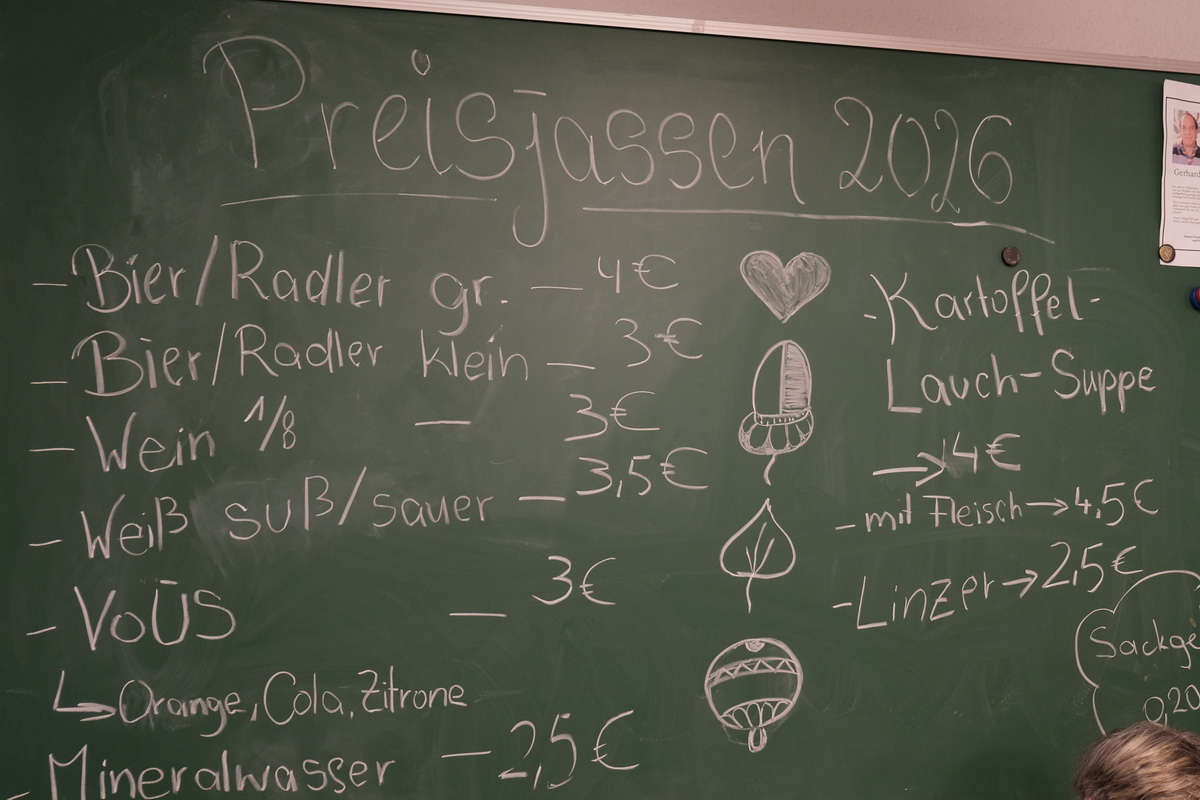 Preisjassen 2026
- Bier/Radler gr. — 4€
- Bier/Radler klein — 3€
- Wein 1/8 — 3€
- Weiß suß/sauer — 3,5€
- VoÜS — 3€
↳ Orange, Cola, Zitrone
- Mineralwasser — 2,5€
- Kartoffel-
Lauch-Suppe
→ 4€
- mit Fleisch → 4,5€
- Linzer → 2,5€
Sackge
0,20
Gerhard